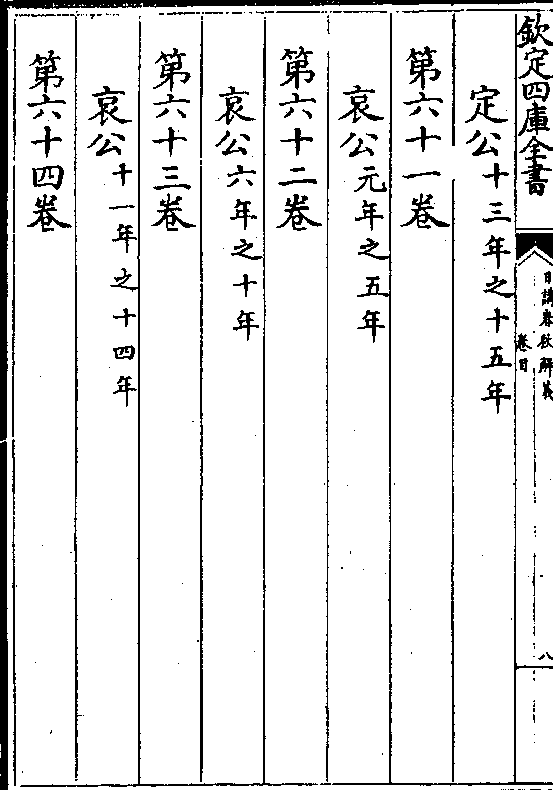 欽定四庫全書
日講春秋解義
卷目
八
定公十三年之十五年
第六十一卷
哀公元年之五年
第六十二卷
哀公六年之十年
第六十三卷
哀公十一年之十四年
第六十四卷